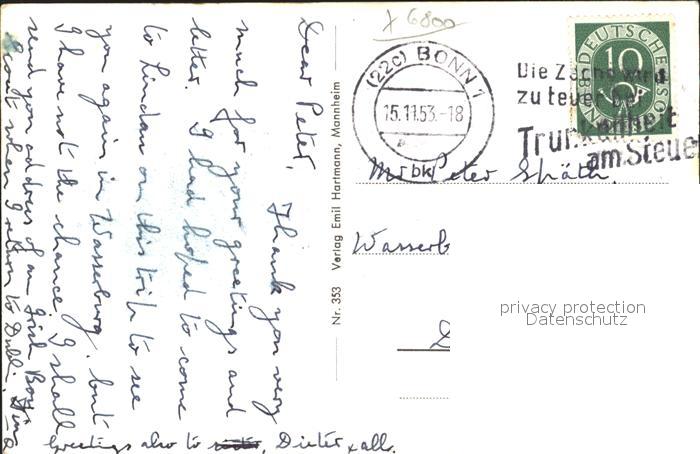 Dear Peter,
Thank you very
much for your greetings and
letter. I had hoped to come
to Lindau on this trip to see
you again in Wasserburg, but
I have not the chance. I shall
send you address of an Irish Boy
Scout when I return to Dublin.
Greetings also to Dieter & all.
Nr. 353 Verlag Emil Hartmann, Mannheim
x 6800
(22c) BONN 1
15.11.53.-18
bk
DEUTSCHE BUNDESPOST
10
Die Zeche wird
zu teuer bei
Trunkenheit
am Steuer
Mr Peter Späth.
Wasserb
privacy protection
Datenschutz